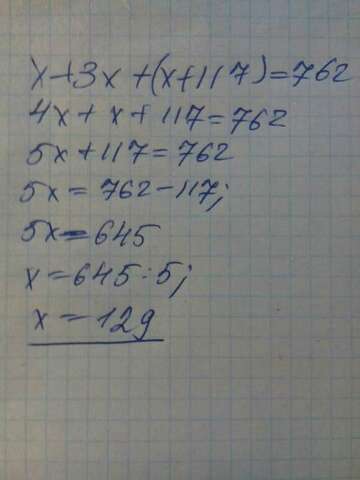 x+3x+(x+117)=762
4x+x+117=762
5x+117=762
5x=762-117;
5x=645
x=645:5;
x=129